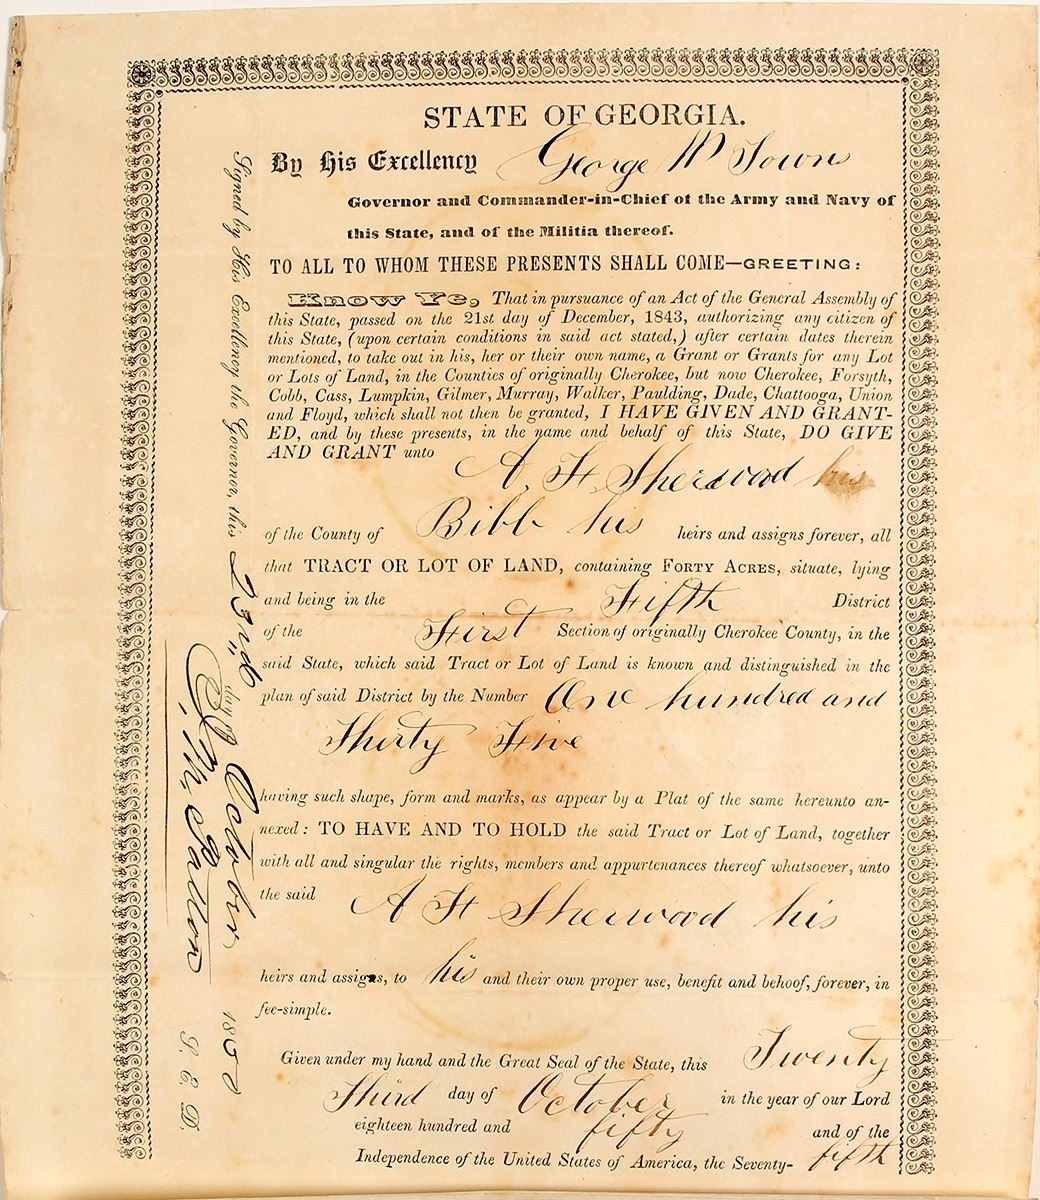 STATE OF GEORGIA.
By His Excellency George W Town
Governor and Commander-in-Chief of the Army and Navy of
this State, and of the Militia thereof.
TO ALL TO WHOM THESE PRESENTS SHALL COME—GREETING:
Know Ye, That in pursuance of an Act of the General Assembly of
this State, passed on the 21st day of December, 1843, authorizing any citizen of
this State, (upon certain conditions in said act stated,) after certain dates therein
mentioned, to take out in his, her or their own name, a Grant or Grants for any Lot
or Lots of Land, in the Counties of originally Cherokee, but now Cherokee, Forsyth,
Cobb, Cass, Lumpkin, Gilmer, Murray, Walker, Paulding, Dade, Chattooga, Union
and Floyd, which shall not then be granted, I HAVE GIVEN AND GRANT-
ED, and by these presents, in the name and behalf of this State, DO GIVE
AND GRANT unto A. H. Sherwood his
of the County of Bibb his heirs and assigns forever, all
that TRACT OR LOT OF LAND, containing FORTY ACRES, situate, lying
and being in the Fifth District
of the First Section of originally Cherokee County, in the
said State, which said Tract or Lot of Land is known and distinguished in the
plan of said District by the Number One hundred and
Thirty Five
having such shape, form and marks, as appear by a Plat of the same hereunto an-
nexed: TO HAVE AND TO HOLD the said Tract or Lot of Land, together
with all and singular the rights, members and appurtenances thereof whatsoever, unto
the said A H Sherwood his
heirs and assigns, to his and their own proper use, benefit and behoof, forever, in
fee-simple.
Given under my hand and the Great Seal of the State, this Twenty
Third day of October in the year of our Lord
eighteen hundred and fifty and of the
Independence of the United States of America, the Seventy-fifth
Signed by His Excellency the Governor, this 23rd day October 1850
S. E. D.